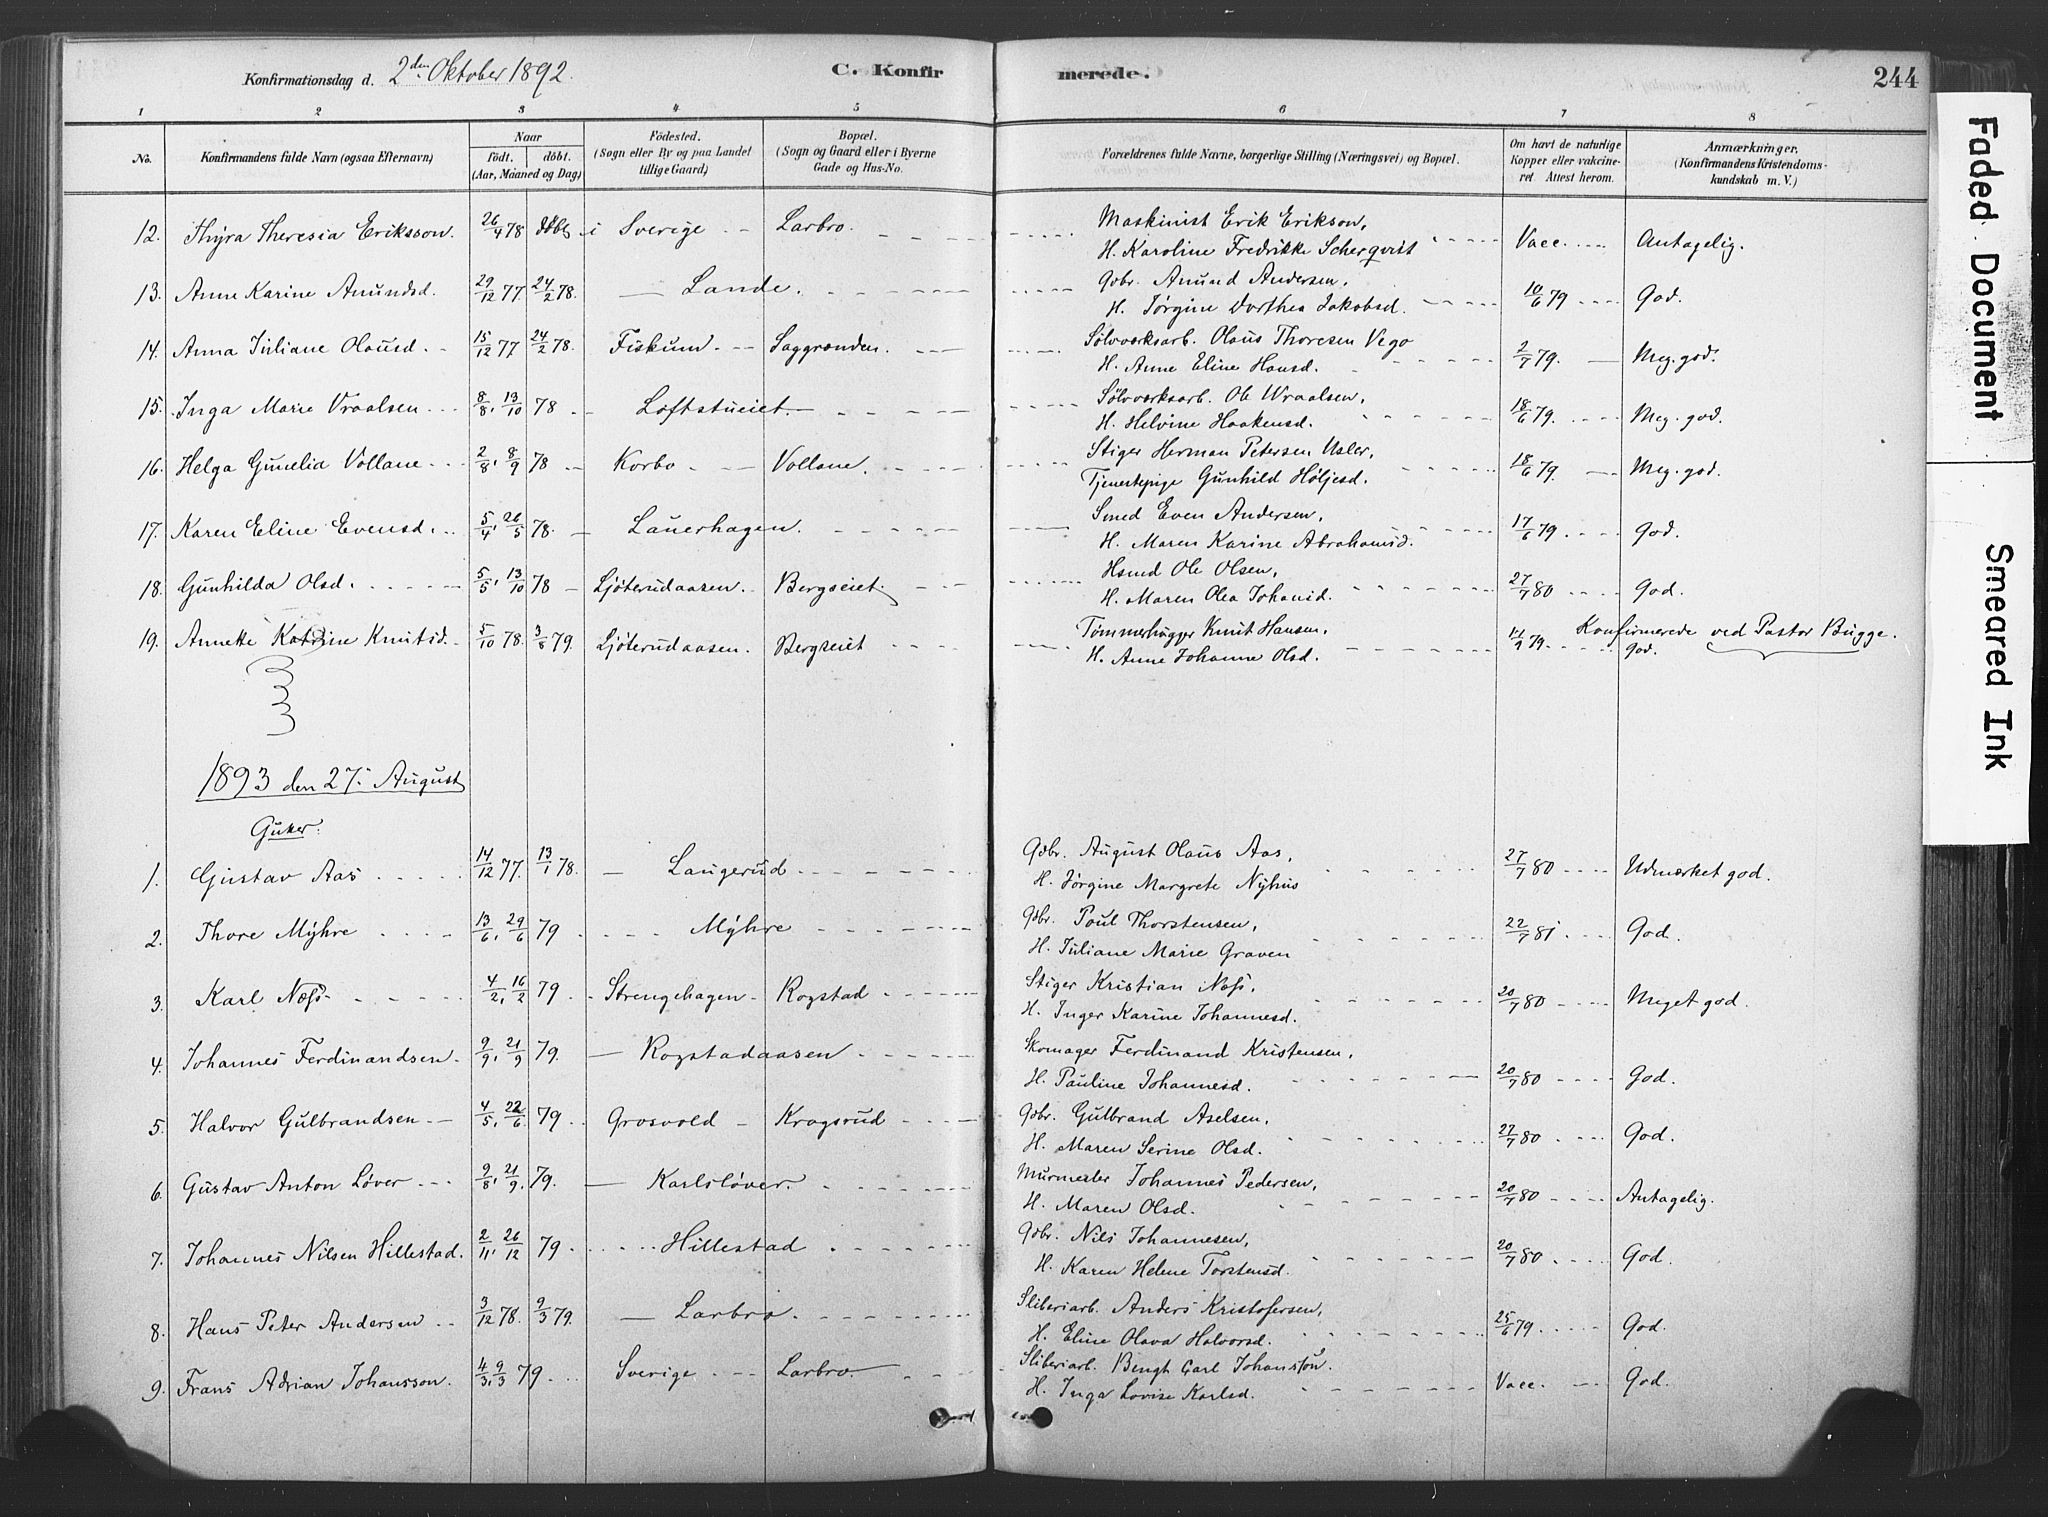 Konfirmationsdag d. 2den Oktober 1892.
C. Konfirmerede.
244
1 2 3 4 5 6 7 8
No.
Konfirmandens fulde Navn (ogsaa Efternavn)
Naar
født. døbt.
(Aar, Maaned og Dag)
Fødested.
(Sogn eller By og paa Landet
tillige Gaard)
Bopæl.
(Sogn og Gaard eller i Byerne
Gade og Hus-No.
Forældrenes fulde Navne, borgerlige Stilling (Næringsvei) og Bopæl.
Om havt de naturlige
Kopper eller vakcine-
ret. Attest herom.
Anmærkninger,
(Konfirmandens Kristendoms-
kundskab m. V.)
12. Thyra Theresia Eriksson. 26/4 78 døbt i Sverige Larbro. Maskinist Erik Erikson, Vacc. Antagelig.
H. Karoline Fredrikke Scherqvist
13. Anne Karine Amundsd. 29/12 77. 24/2 78. Lande. Gdbr. Amund Andersen, 10/6 79 God.
H. Jørgine Dorthea Jakobsd.
14. Anna Juliane Olausd. 15/12 77 24/2 78. Fiskum Saggrenden. Sølvværksarb. Olaus Thoresen Vego 2/7 79. Meg. god.
H. Anne Eline Hansd.
15. Inga Marie Vraalsen 8/8, 13/10 78 Loftstueiet. Sølvværksarb. Ole Wraalsen, 18/6 79. Meg. god.
H. Helvine Haakensd.
16. Helga Gunelia Vollane 2/8, 8/9 78 Korbo Vollane. Stiger Herman Petersen Usler, 18/6 79. Meg. god.
Tjenestepige Gunhild Høljesd.
17. Karen Eline Evensd. 5/4, 26/5 78. Lauerhagen. Smed Even Andersen, 17/6 79 God.
H. Maren Karine Abrahamsd.
18. Gunhilda Olsd. 5/5, 13/10 78 Ljøterudaasen. Bergseiet. Hsmd Ole Olsen, 27/7 80 God.
H. Maren Olea Johansd.
19. Annette Katrine Knutsd. 5/10 78. 3/8 79. Ljøterudaasen. Bergseiet Tømmerhugger Knut Hansen, 11/9 79. Konfirmerede ved Pastor Bugge.
H. Anne Johanne Olsd. God.
1893 den 27. August
Gutter:
1. Gustav Aas 14/12 77. 13/1 78. Laugerud Gdbr. August Olaus Aas, 27/7 80 Udmærket god.
H. Jørgine Margrete Nyhus
2. Thore Myhre 13/6, 29/6 79 Myhre Gdbr. Poul Thorstensen, 22/7 81. God.
H. Juliane Marie Graven
3. Karl Næss 4/2, 16/2 79 Strengehagen Rogstad Stiger Kristian Næss, 20/7 80 Meget god.
H. Inger Karine Johannesd.
4. Johannes Ferdinandsen. 9/9, 21/9 79. Rogstadaasen Skomager Ferdinand Kristensen, 20/7 80 God.
H. Pauline Johannesd.
5. Halvor Gulbrandsen 4/5, 22/6 79 Grosvold Kragsrud Gdbr. Gulbrand Axelsen, 27/7 80 God.
H. Maren Serine Olsd.
6. Gustav Anton Løver 9/8, 21/9. 79. Karlsløver. Murmester Johannes Pedersen, 20/7 80 Antagelig.
H. Maren Olsd.
7. Johannes Nilsen Hillestad. 2/11, 26/12 79 Hillestad Gdbr. Nils Johannesen, 20/7 80 God.
H. Karen Helene Torstensd.
8. Hans Peter Andersen 3/12 78. 9/3 79. Larbro. Sliberiarb. Anders Kristofersen, 25/6 79 God.
H. Eline Olava Halvorsd.
9. Frans Adrian Johansson. 4/3, 9/3 79 Sverige Larbro Sliberiarb. Bengt Carl Johansson. Vacc. God.
H. Inga Lovise Karlsd.
Faded Document
Smeared Ink